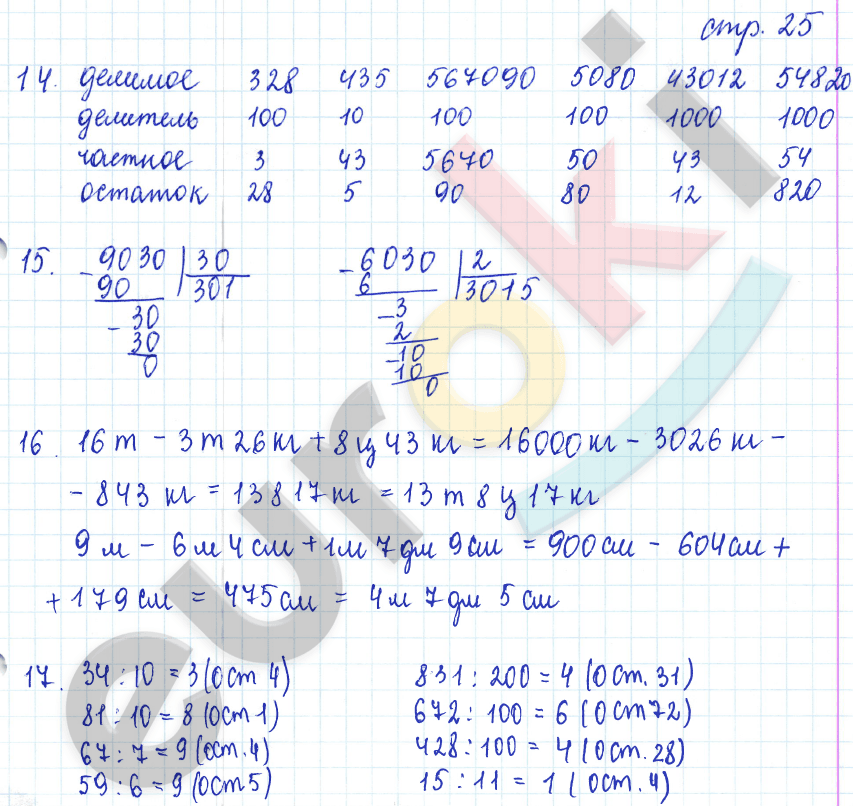 стр. 25
14. делимое 328 435 567090 5080 43012 54820
делитель 100 10 100 100 1000 1000
частное 3 43 5670 50 43 54
остаток 28 5 90 80 12 820
15. - 9030 | 30 - 6030 | 2
90 301 6 3015
- 30 - 3
30 2
0 - 10
10
0
16. 16 т - 3 т 26 кг + 8 ц 43 кг = 16000 кг - 3026 кг -
- 843 кг = 13817 кг = 13 т 8 ц 17 кг
9 м - 6 м 4 см + 1 м 7 дм 9 см = 900 см - 604 см +
+ 179 см = 475 см = 4 м 7 дм 5 см
17. 34 : 10 = 3 (ост 4) 831 : 200 = 4 (ост. 31)
81 : 10 = 8 (ост 1) 672 : 100 = 6 (ост 72)
67 : 7 = 9 (ост. 4) 428 : 100 = 4 (ост. 28)
59 : 6 = 9 (ост 5) 15 : 11 = 1 (ост. 4)
euroki